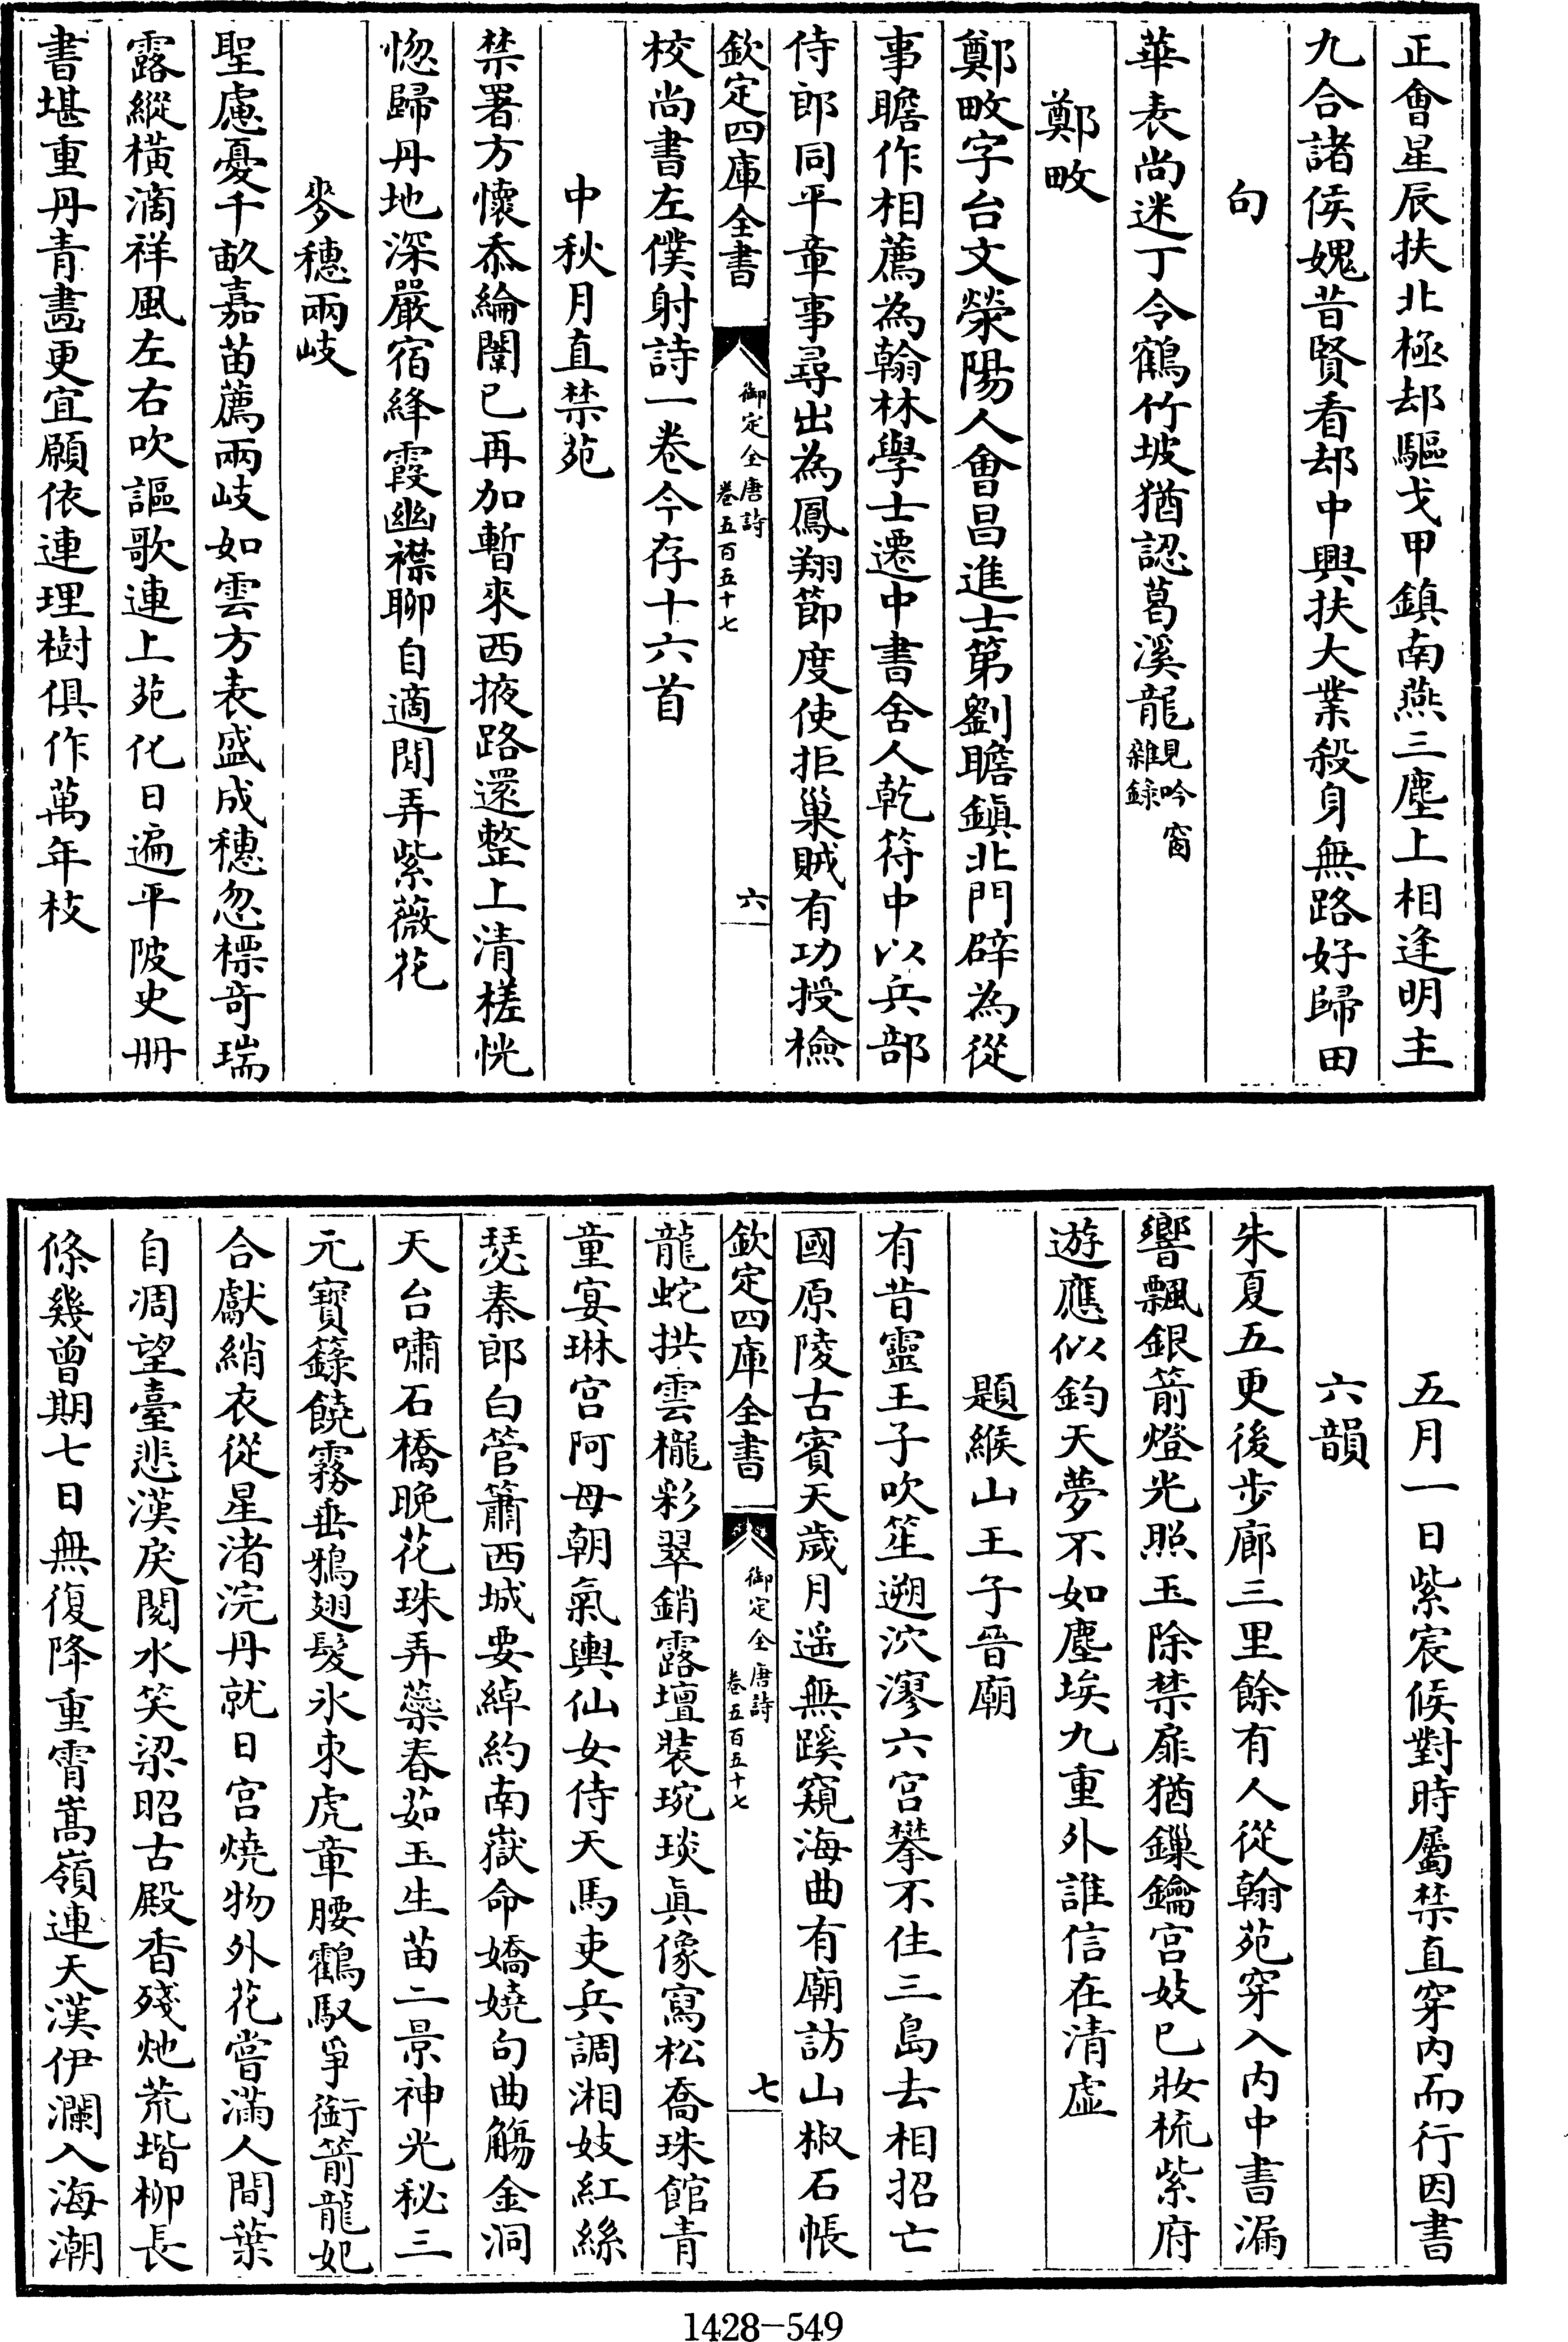 正會星辰扶北極却驅戈甲鎮南燕三塵上相逢明主
九合諸侯媿昔賢看却中興扶大業殺身無路好歸田
句
華表尚迷丁令鶴竹坡猶認葛溪龍見吟窗雜錄
鄭畋
鄭畋字台文滎陽人會昌進士第劉瞻鎮北門辟為從
事瞻作相薦為翰林學士遷中書舍人乾符中以兵部
侍郎同平章事尋出為鳳翔節度使拒巢賊有功授檢
欽定四庫全書
御定全唐詩
卷五百五十七
六
校尚書左僕射詩一卷今存十六首
中秋月直禁苑
禁署方懷忝綸闈已再加暫來西掖路還整上清槎恍
惚歸丹地深嚴宿絳霞幽襟聊自適閒弄紫薇花
麥穗兩岐
聖慮憂千畝嘉苗薦兩岐如雲方表盛成穗忽標奇瑞
露縱橫滴祥風左右吹謳歌連上苑化日遍平陂史册
書堪重丹青畫更宜願依連理樹俱作萬年枝
五月一日紫宸候對時屬禁直穿内而行因書
六韻
朱夏五更後步廊三里餘有人從翰苑穿入内中書漏
響飄銀箭燈光照玉除禁扉猶鏁鑰宮妓已妝梳紫府
遊應似鈞天夢不如塵埃九重外誰信在清虛
題緱山王子晉廟
有昔靈王子吹笙遡泬漻六宮攀不住三島去相招亡
國原陵古賓天歲月遥無蹊窺海曲有廟訪山椒石帳
欽定四庫全書
御定全唐詩
卷五百五十七
七
龍蛇拱雲櫳彩翠銷露壇裝琬琰眞像寫松喬珠館青
童宴琳宮阿母朝氣輿仙女侍天馬吏兵調湘妓紅絲
瑟秦郎白管簫西城要綽約南嶽命嬌嬈句曲觴金洞
天台嘯石橋晚花珠弄蘂春茹玉生苗二景神光秘三
元寶籙饒霧垂鴉翅髮氷束虎章腰鸖馭爭銜箭龍妃
合獻綃衣從星渚浣丹就日宮燒物外花嘗滿人間葉
自凋望臺悲漢戾閱水笑梁昭古殿香殘灺荒堦柳長
條幾曾期七日無復降重霄嵩嶺連天漢伊瀾入海潮
1428-549